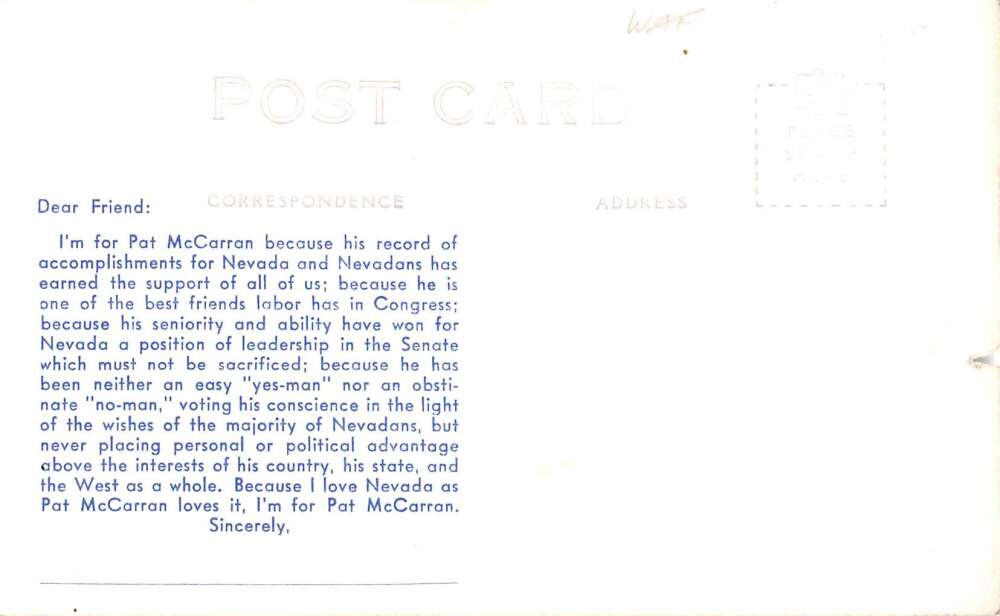 WAF
POST CARD
PLACE
STAMP
HERE
CORRESPONDENCE
ADDRESS
Dear Friend:
I'm for Pat McCarran because his record of
accomplishments for Nevada and Nevadans has
earned the support of all of us; because he is
one of the best friends labor has in Congress;
because his seniority and ability have won for
Nevada a position of leadership in the Senate
which must not be sacrificed; because he has
been neither an easy "yes-man" nor an obsti-
nate "no-man," voting his conscience in the light
of the wishes of the majority of Nevadans, but
never placing personal or political advantage
above the interests of his country, his state, and
the West as a whole. Because I love Nevada as
Pat McCarran loves it, I'm for Pat McCarran.
Sincerely,